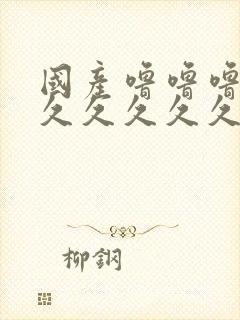 國産噜噜噜
久久久久久
柳鋼